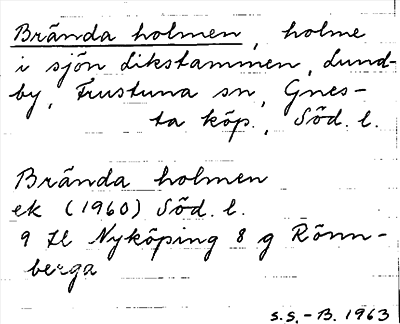 Brända holmen, holme
i sjön Likstammen, Lund-
by, Frustuna sn, Gnes-
ta köp., Söd. l.
Brända holmen
ek (1960) Söd. l.
9 H Nyköping 8 g Rönn-
berga
S.S.-B. 1963